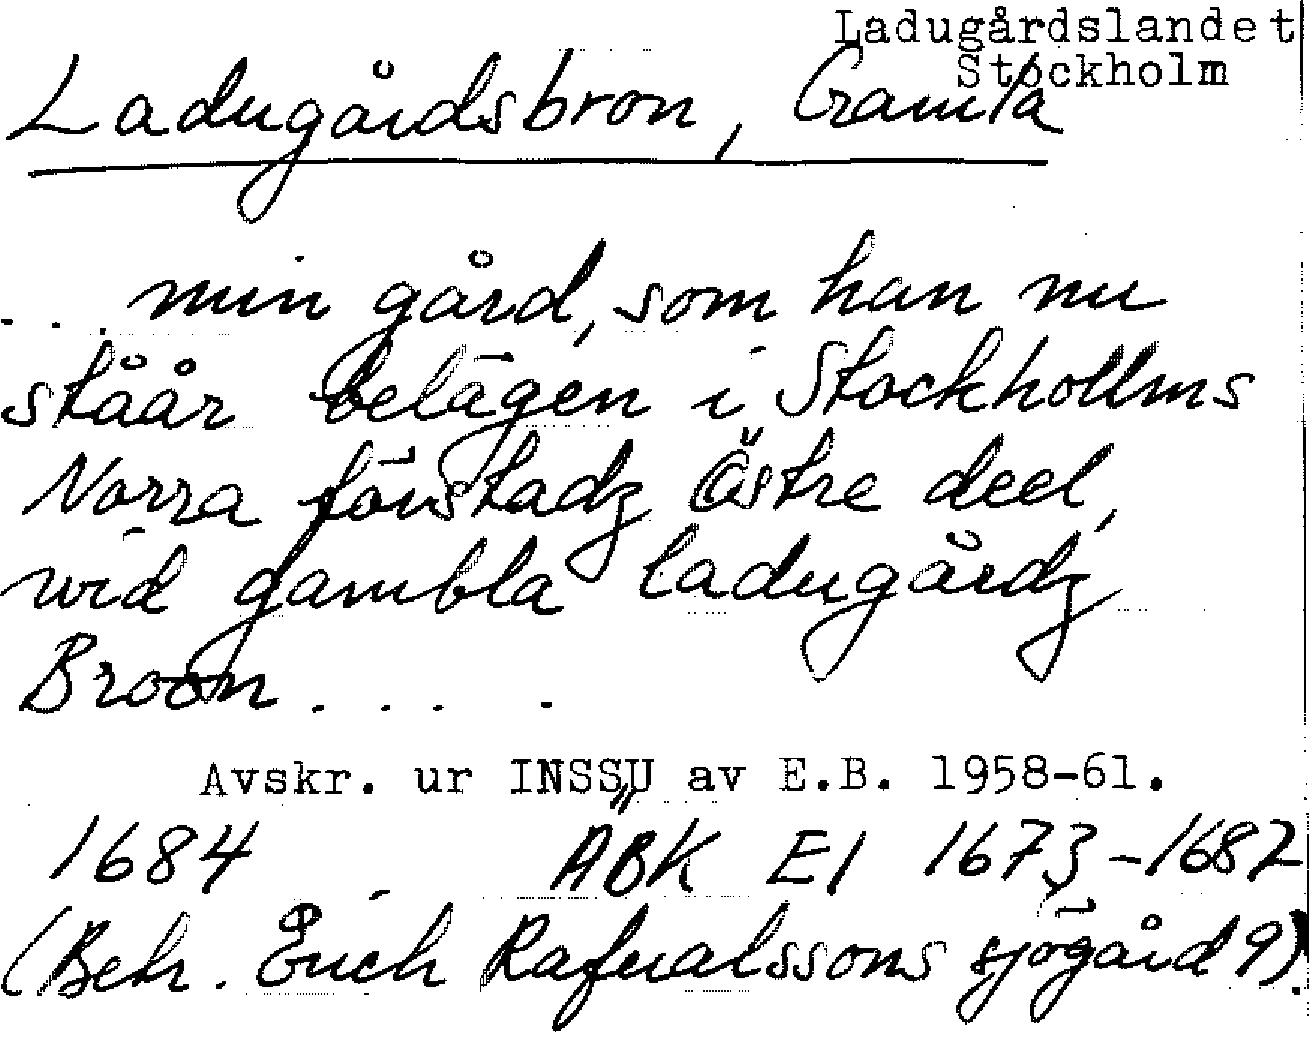 Ladugårdslandet
Stockholm
Ladugårdsbron, Gamla
... min gård, som han nu
ståår belägen i Stockhollms
Norra förstadz Östre deel,
wid gambla ladugårdz
Broon . . . .
Avskr. ur INSSU av E.B. 1958-61.
1684 ÄBK E1 1673-1682
(Betr. Erich Rafualssons sjögård 9).